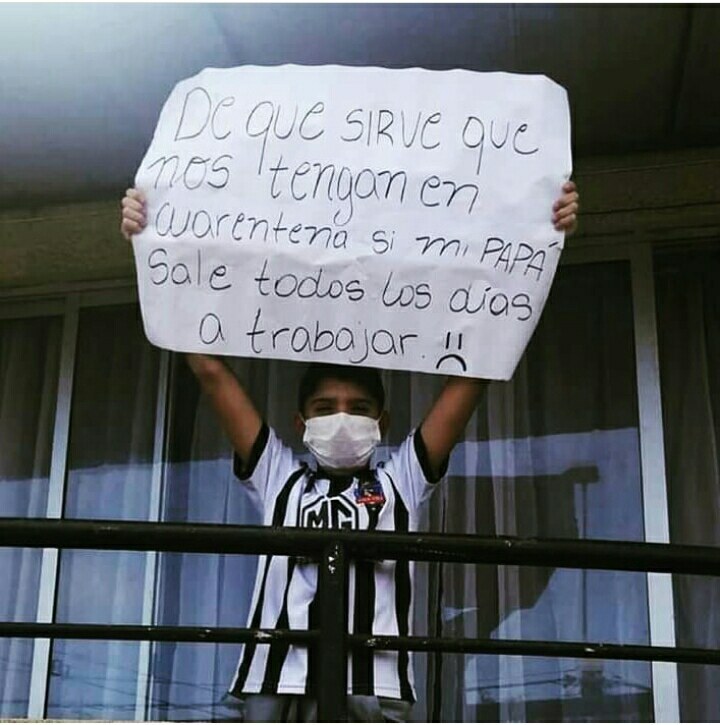 De que SIRVE que
nos tengan en
cuarentena si mi PAPÁ
Sale todos los días
a trabajar.
MG